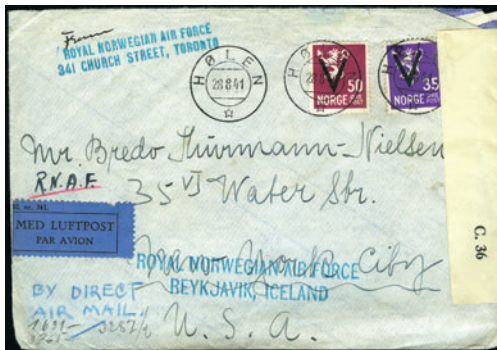 From
ROYAL NORWEGIAN AIR FORCE
341 CHURCH STREET, TORONTO
HØLEN
28 8 41
HØLEN
V
50
NORGE
V
35
NORGE
Mr. Bredo Thurmann-Nielsen
R.N.A.F.
35 VI Water Str.
MED LUFTPOST
PAR AVION
New York City
ROYAL NORWEGIAN AIR FORCE
REYKJAVIK, ICELAND
BY DIRECT
AIR MAIL.
U. S. A.
C. 36